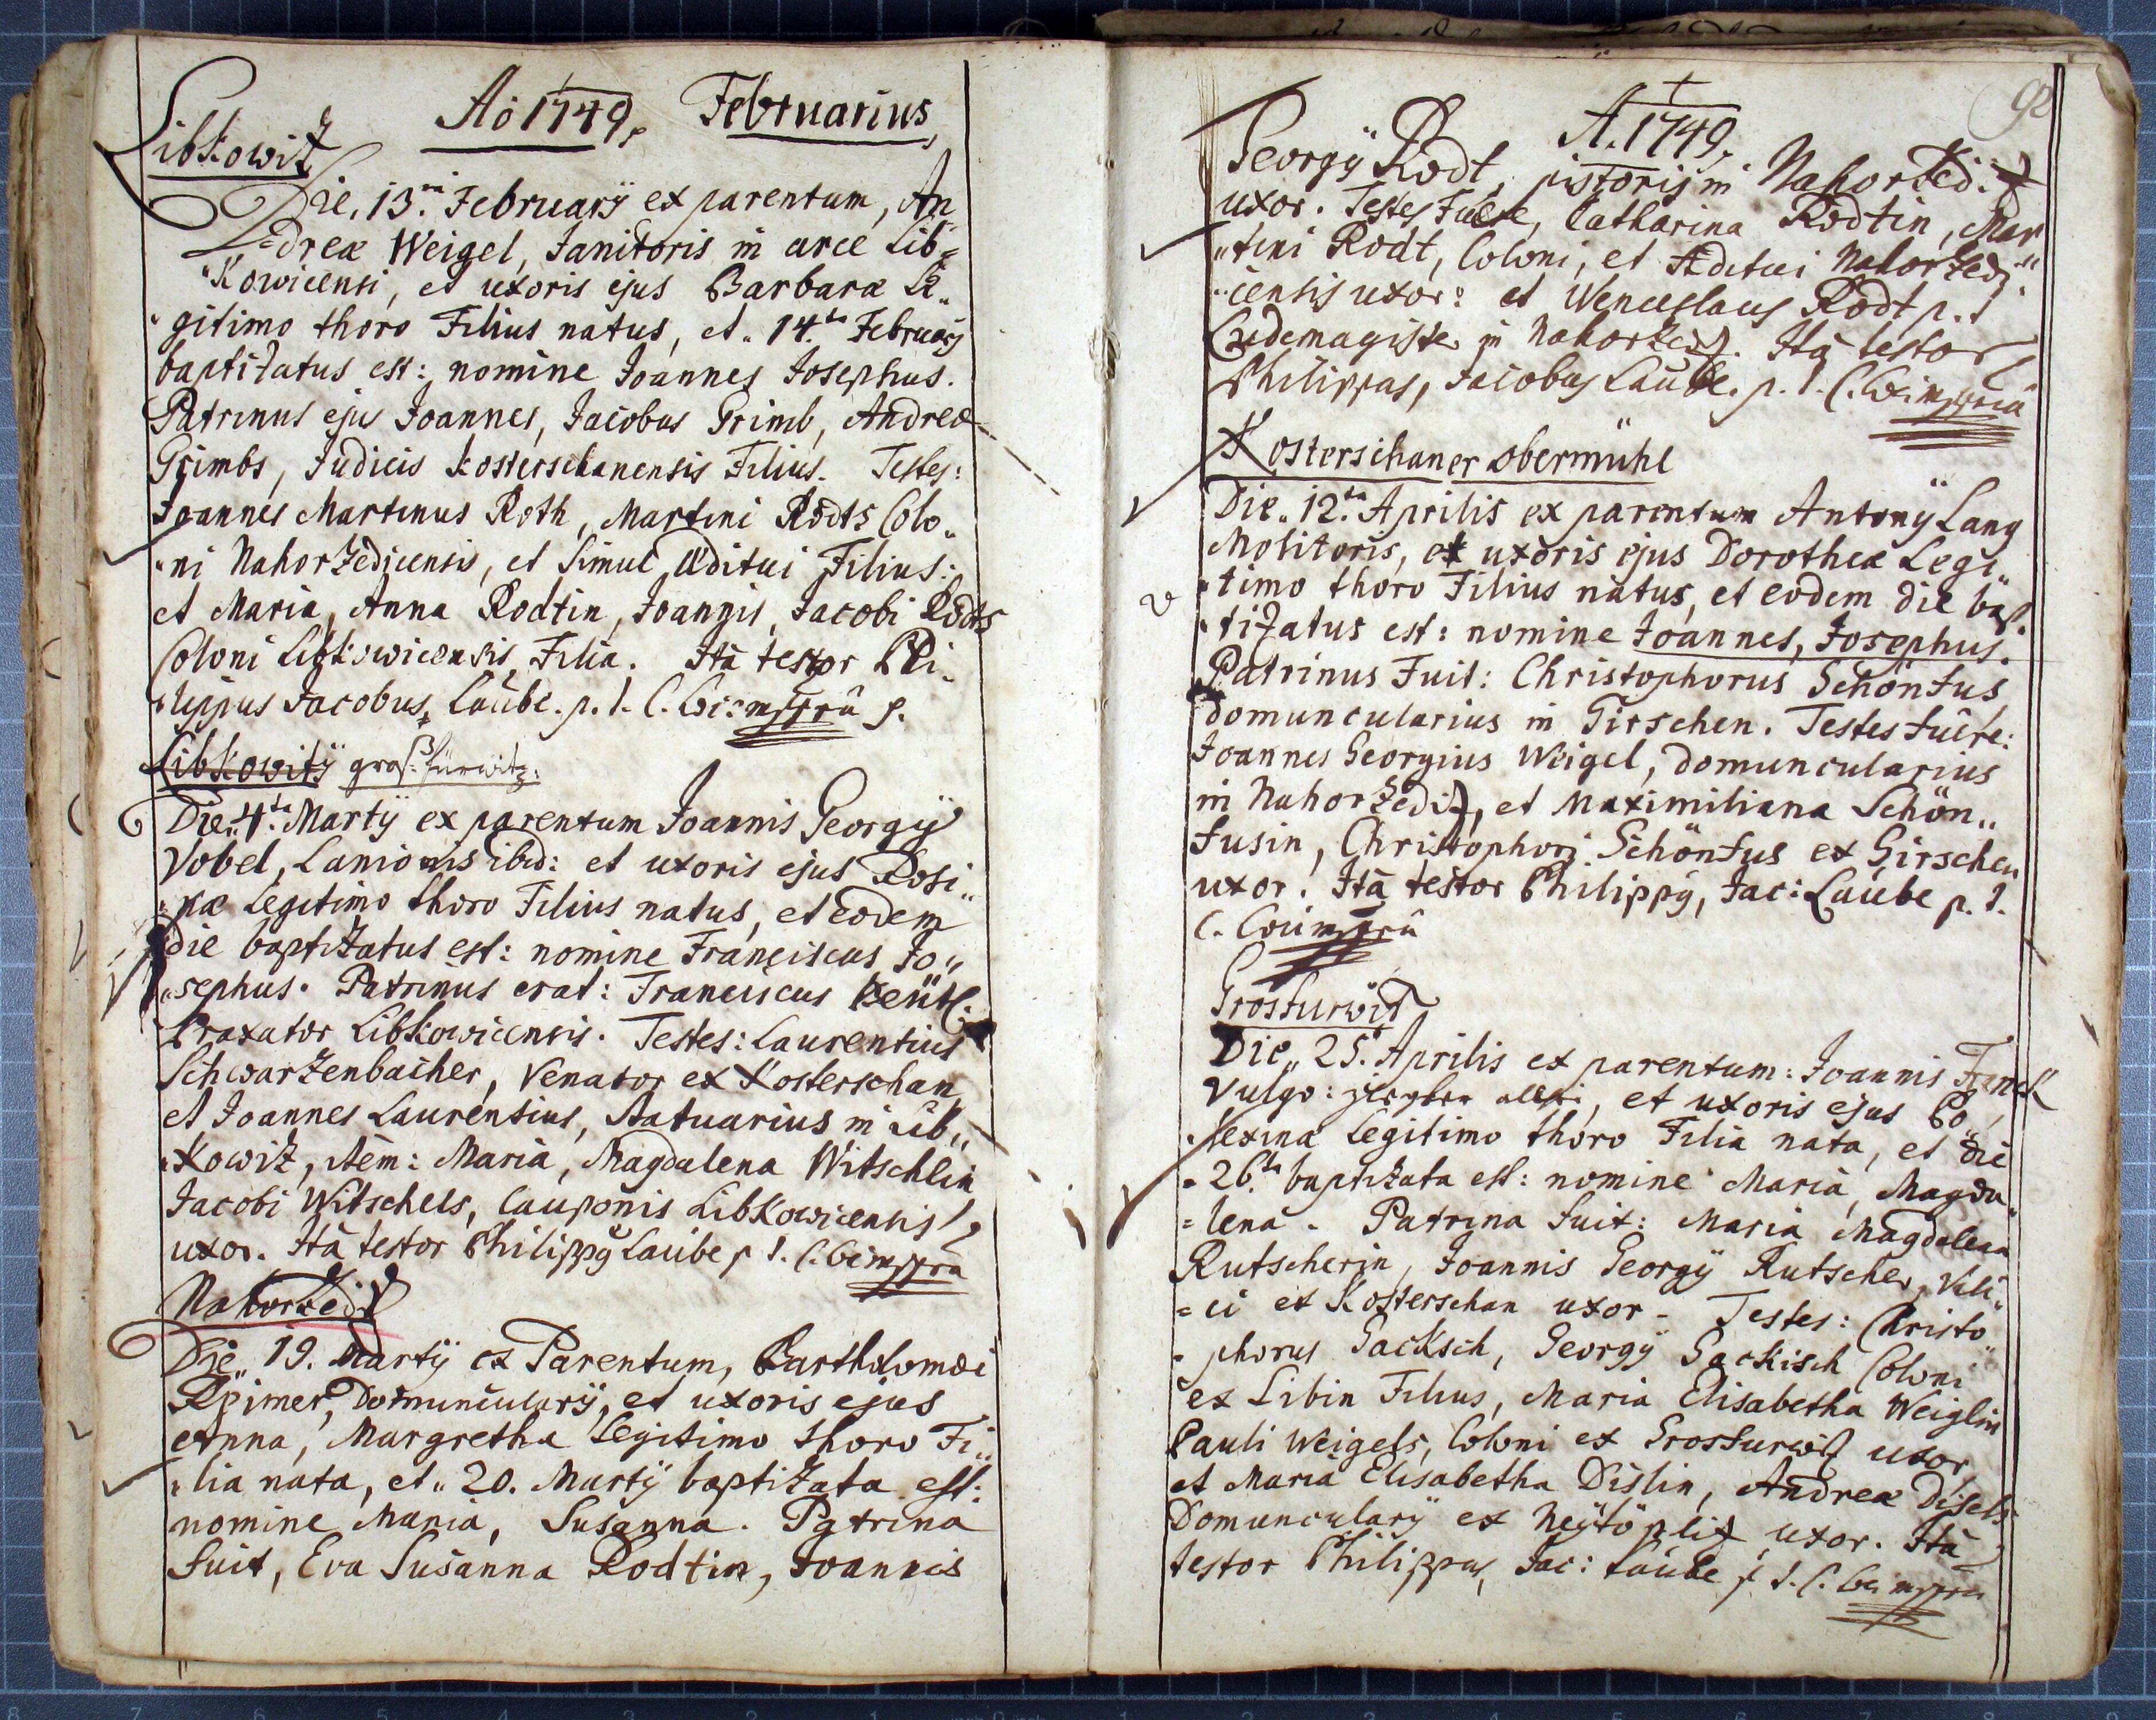 Aõ 1749. Februarius
Libkowitz
Die, 13. February ex parentum, An
dreæ Weigel, Janitoris in arce Lib=
"Kowicensi, et uxoris ejus Barbaræ Le„
"gitimo thoro Filius natus, et „14.ta February
baptizatus est: nomine Joannes Josephus.
Patrinus ejus Joannes, Jacobus Grimb, Andreæ
Grimbs, Judicis Kosterschanensis Filius. Testes:
Joannes Martinus Roth, Martini Rodts Colo„
"ni Nahorzedicensis, et simul Æditui Filius:
et Maria, Anna Rodtin, Joannis, Jacobi Rodts
Coloni Libkowicensis Filia. Ità testor Phi„
"lippus Jacobus, Laube. p. t.
Libkowitz groß: furwitz:
Die „4.ta Martÿ ex parentum Joannis Georgÿ
Vobel, Lanionis ibid: et uxoris ejus Rosi„
"næ Legitimo thoro Filius natus, et eodem
die baptizatus est: nomine Franciscus Jo„
"sephus. Patrinus erat: Franciscus
Braxator Libkowicensis. Testes: Laurentius
Schwartzenbacher, Venator ex Kosterschan,
et Joannes Laurentius, Statuarius in Lib„
"Kowitz, item: Maria, Magdalena Witschlin
Jacobi Witschels, Cauponis Libkowicensis
uxor. Ità testor Philippÿ Laube p. t.
Nahorzeditz
Die „19. Martÿ ex Parentum, Bartholomæi
Reimer, Domuncularÿ, et uxoris ejus
Anna, Margretha Legitimo thoro Fi„
"lia nata, et „20. Martÿ baptizata est:
nomine Maria, Susanna. Patrina
fuit, Eva Susanna Rodtin, Joannis
A. 1749.
Georgÿ Rodt, pistoris in Nahorzeditz
uxor. Testes Fuere, Catharina Rodtin, Mar
"tini Rodt, Coloni, et Æditui Nahorzedi„
"censis uxor: et Wenceslaus Rodt p. t
Ludemagister in Nahorzeditz. Ità testor
Philippus, Jacobus Laube. p. t.
Kosterschaner Obermühl
Die „12.ta Aprilis ex parentum Antonÿ Lang
Molitoris, et uxoris ejus Dorotheæ Legi„
"timo thoro Filius natus, et eodem die bap„
"tizatus est: nomine Joannes, Josephus.
Patrinus Fuit: Christophorus Schönfus
domuncularius in Girschen. Testes fuêre:
Joannes Georgius Weigel, domuncularius
in Nahorzeditz, et Maximiliana Schön„
fusin, Christophori Schönfus ex Girschen
uxor. Ità testor Philippÿ, Jac: Laube p. t.
Grosfurwitz
Die „25. Aprilis ex parentum: Joannis Franck
Vulgo: , et uxoris ejus Po„
"lexina Legitimo thoro Filia nata, et die
„26.ta baptizata est: nomine Maria, Magda„
=lena. Patrina fuit: Maria Magdalena
Rutscherin, Joannis Georgÿ Rutscher, Vili„
=ci ex Kosterschan uxor. Testes: Christo„
"phorus Gacksch, Georgÿ Gackisch Coloni
ex Libin Filius, Maria Elisabetha Weiglin
Pauli Weigels, Coloni ex Grosfurwitz uxor
et Maria Elisabetha Dislin, Andreæ Disels
Domuncularÿ ex Neÿtöplitz uxor. Ità
testor Philippus, Jac: Laube p. t.